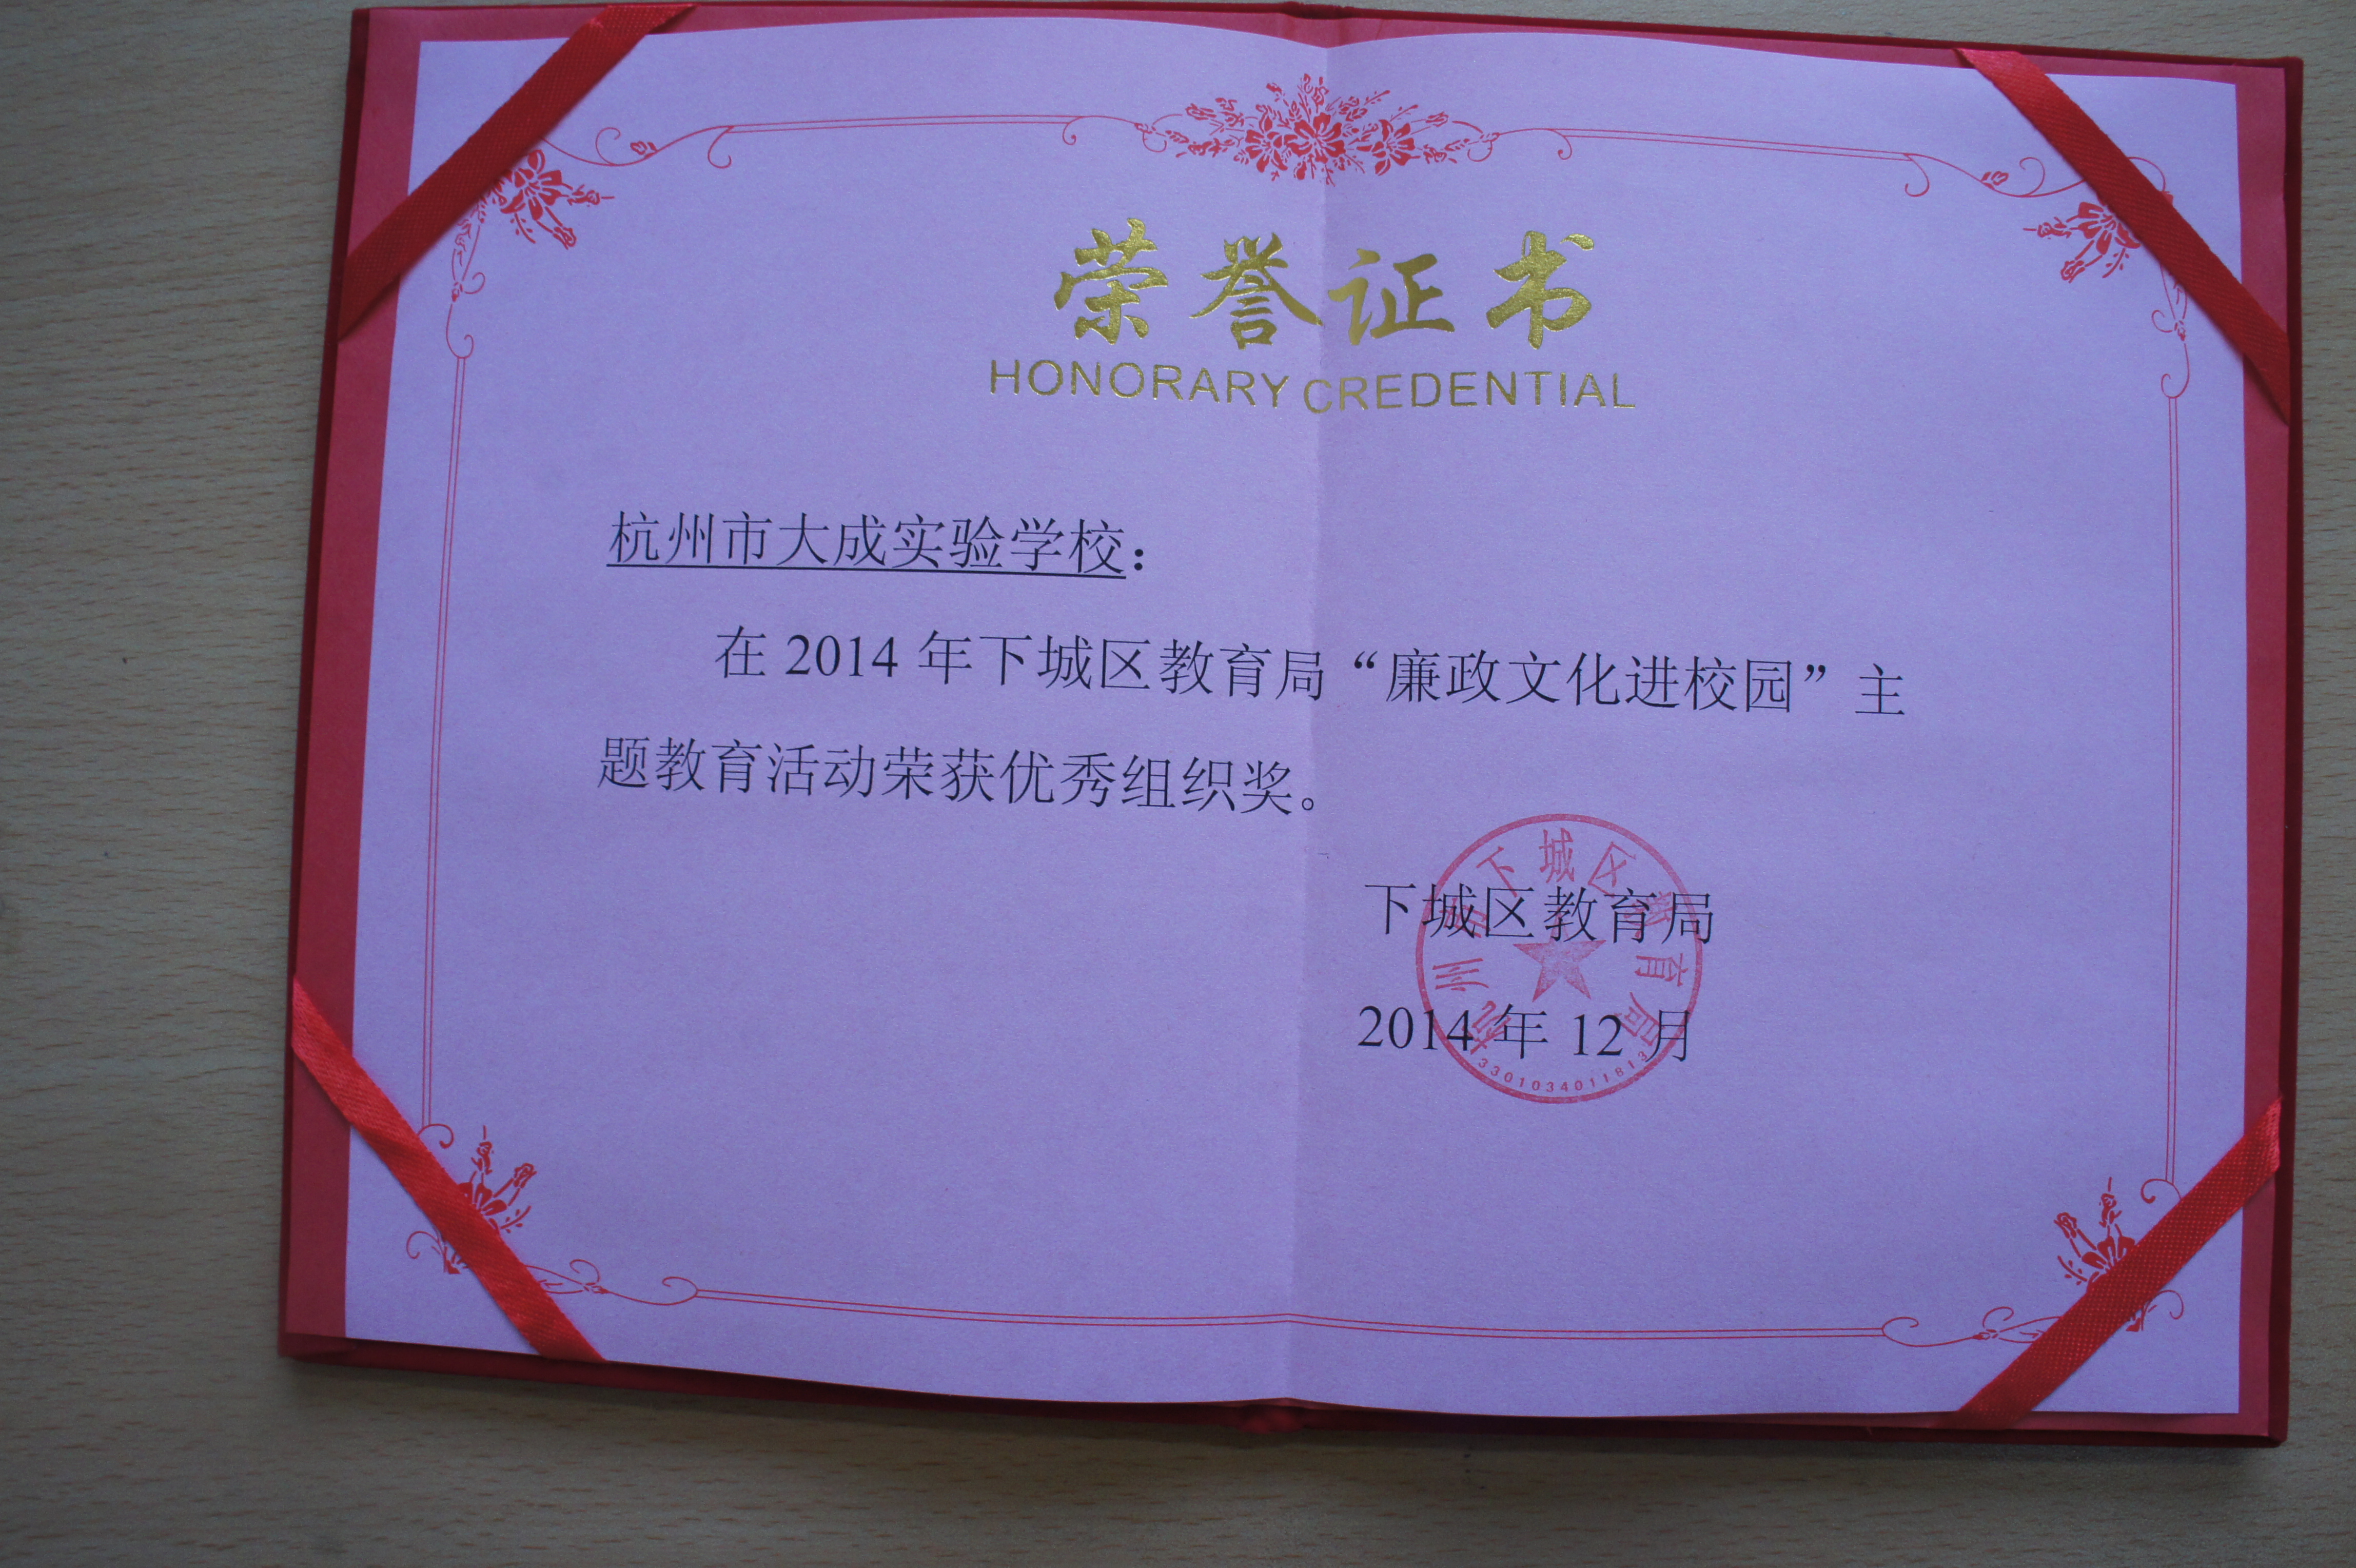 荣誉证书
HONORARY CREDENTIAL
杭州市大成实验学校：
在 2014 年下城区教育局“廉政文化进校园”主
题教育活动荣获优秀组织奖。
下城区教育局
2014 年 12 月
杭州市下城区教育局
3301034011813